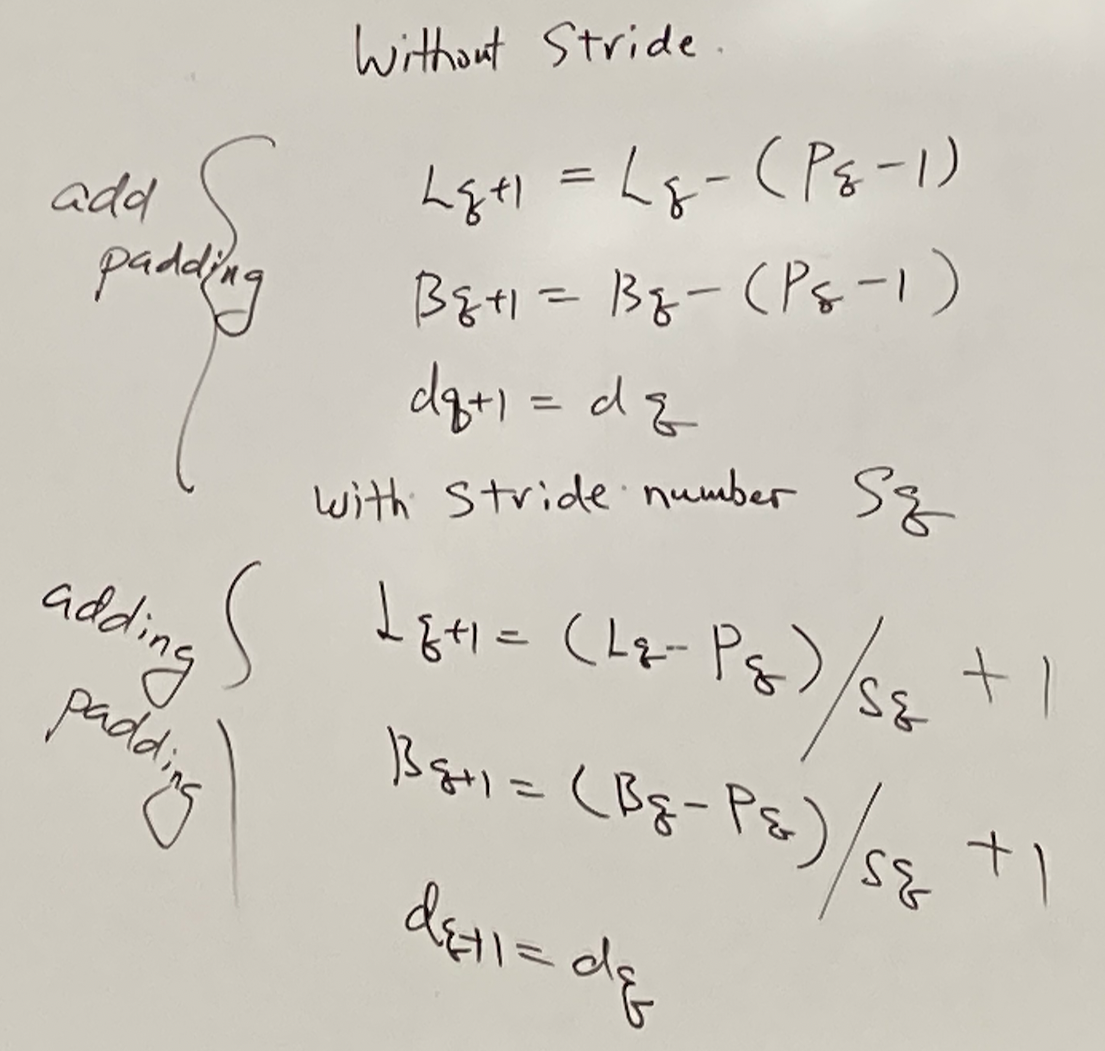 Without Stride.
add padding
Lq+1 = Lq - (Pq - 1)
Bq+1 = Bq - (Pq - 1)
dq+1 = dq
with stride number Sq
adding padding
Lq+1 = (Lq - Pq)/Sq + 1
Bq+1 = (Bq - Pq)/Sq + 1
dq+1 = dq